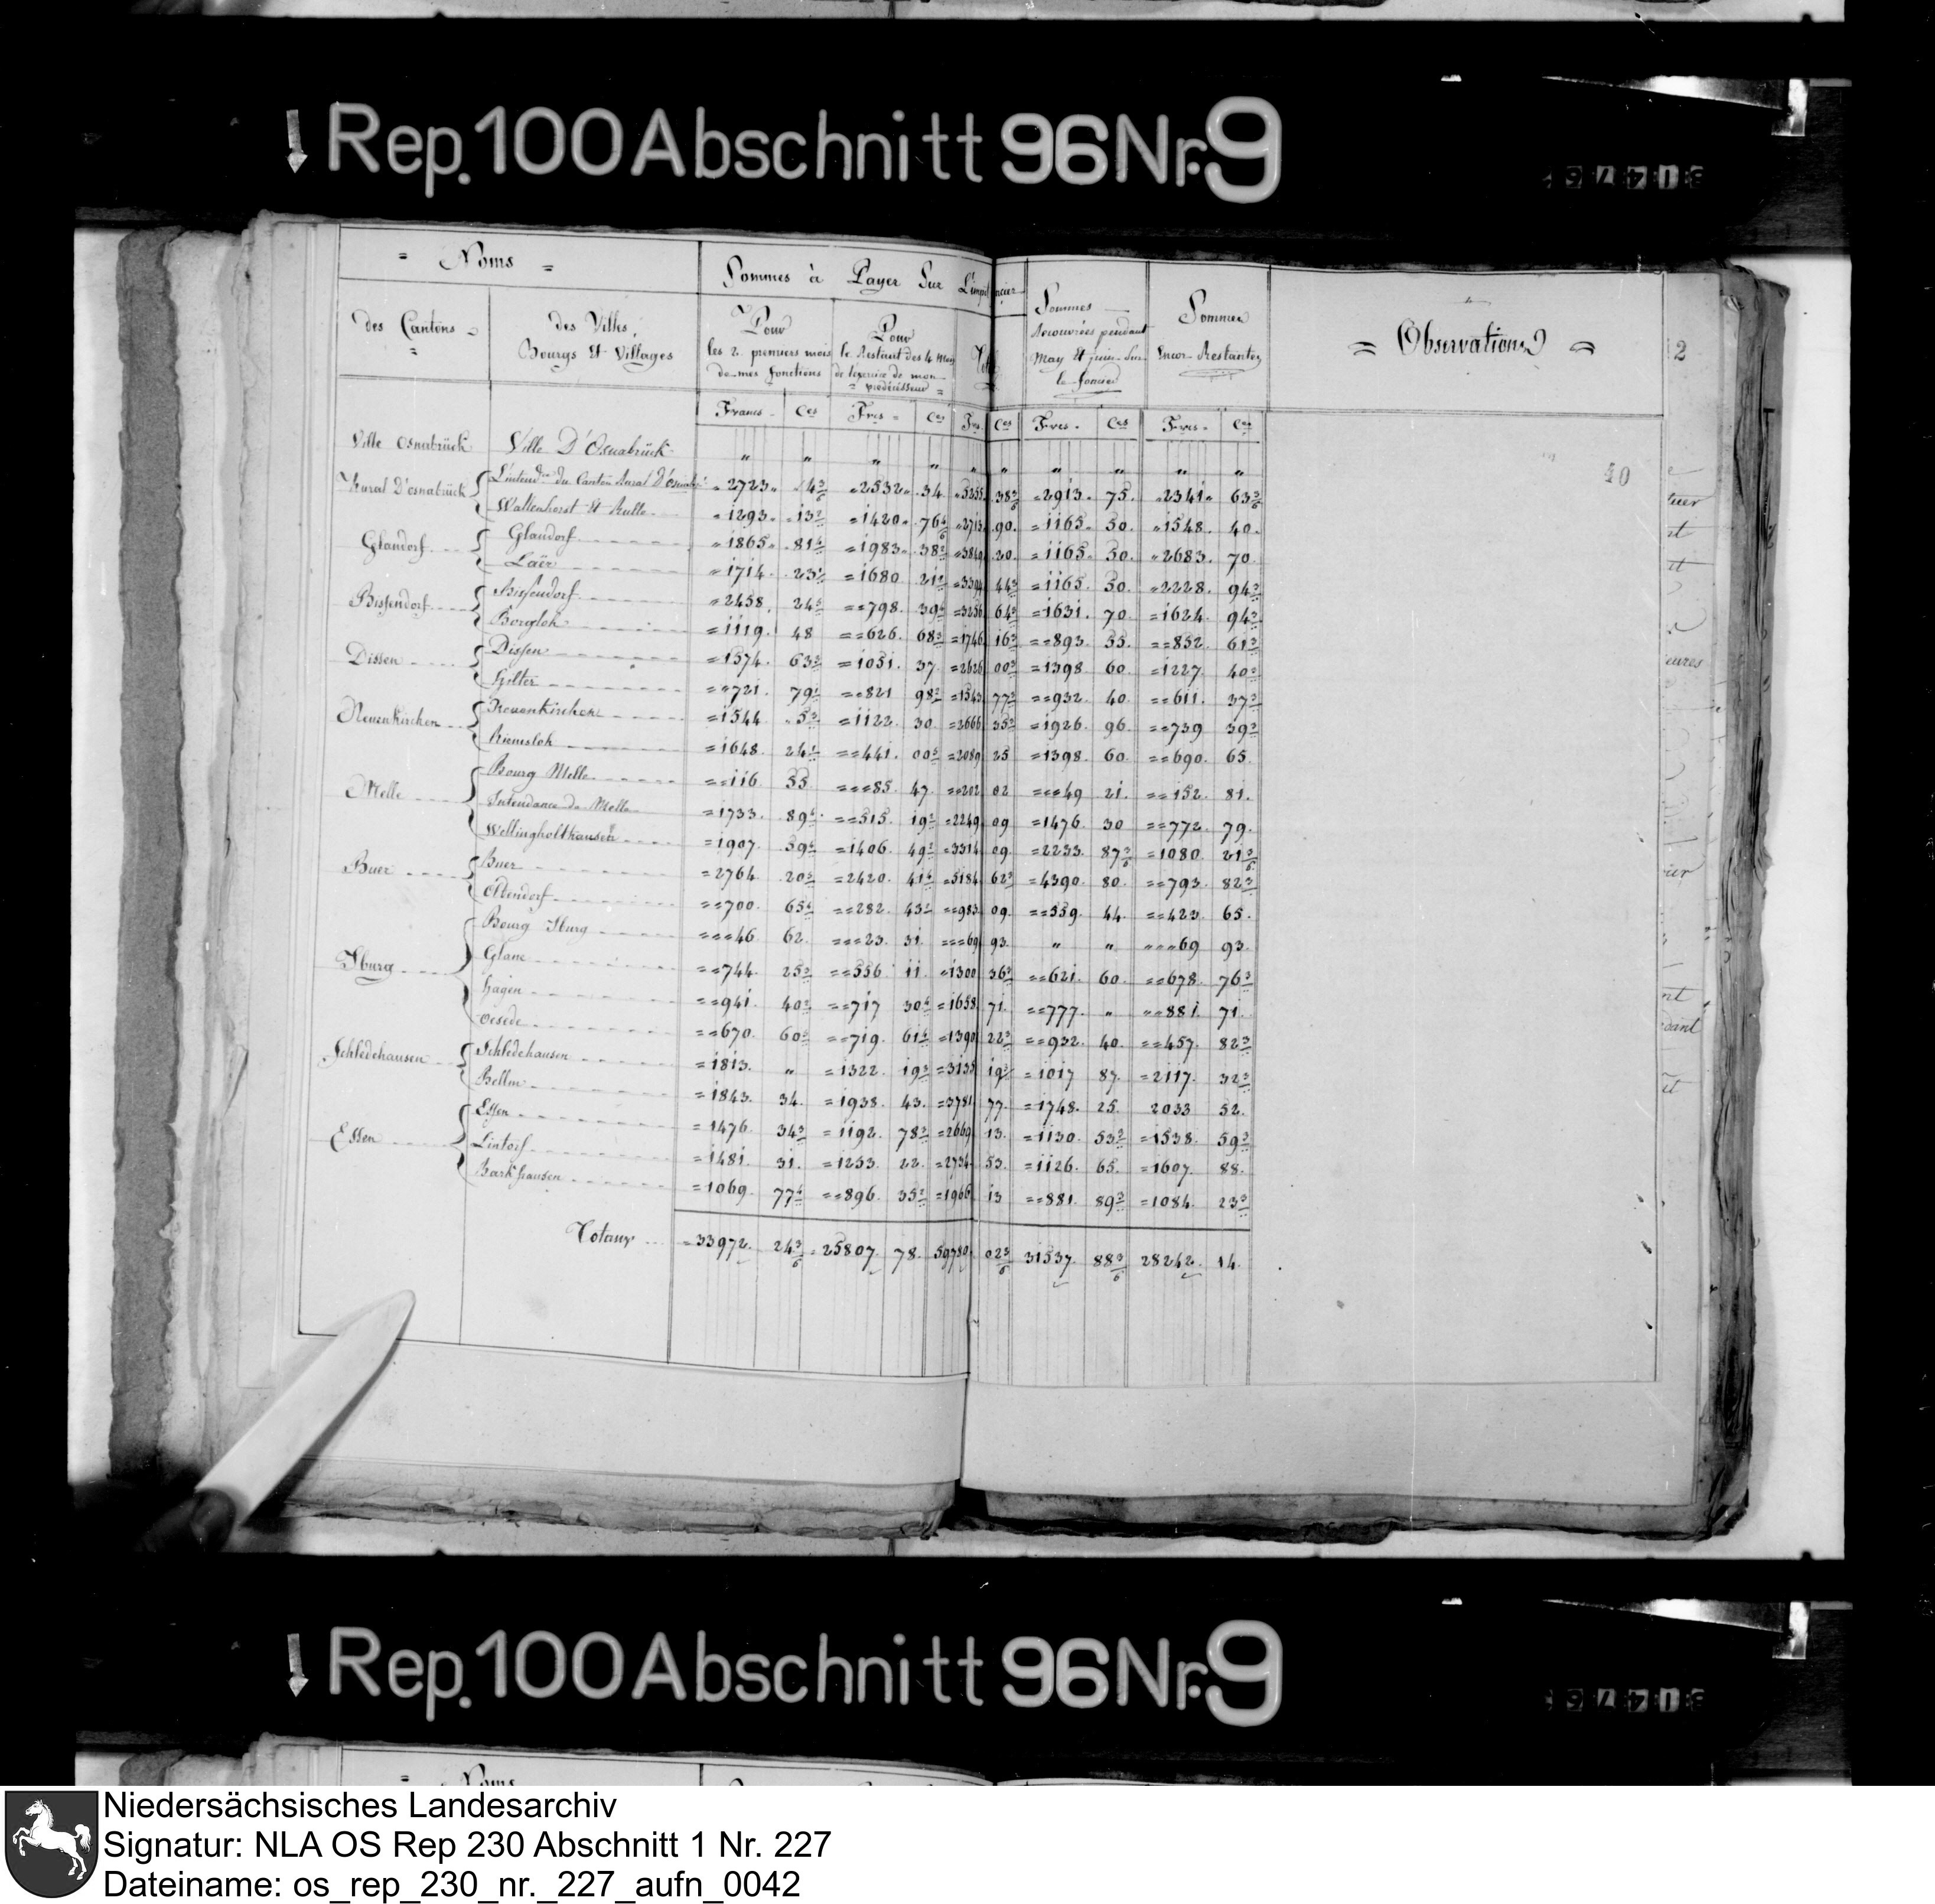 Rep. 100 Abschnitt 96 Nr. 9
= Noms =
Sommes à Payer Sur L'imp ncier
des Cantons =
des Villes, Bourgs Et Villages
Pour les 2 premiers mois de mes fonctions
Pour le Restant des 4 mois de l'exercice de mon prédécesseur =
Sommes recouvrées pendant May Et juin Sur le foncier
Sommes Encor Restantes
= Observations =
2
Francs Ces Frcs = Ces Frs. Ces Frcs. Ces Frcs. Ces
Ville Osnabrück Ville D'Osnabrück " " " " " " " " " "
20
Rural D'osnabrück L'intend du Canton Rural D'Osnabr 2723 43/6 2532 34 5255 383/6 2913 75 2341 633/6
Wallenhorst Et Rulle 1293 132 1420 764/6 2713 90 1165 50 1548 40
Glandorf Glandorf 1865 814 1983 382 3849 20 1165 50 2683 70
Läer 1714 231 1680 212 3394 443 1165 50 2228 943
Bissendorf Bissendorf 2458 245 798 394 3256 643 1631 70 1624 943
Borgloh 1119 48 626 683 1746 163 893 55 852 613
Dissen Dissen 1574 633 1051 37 2626 003 1398 60 1227 403
Hilter 721 791 821 982 1543 773 932 40 611 373
Neuenkirchen Neuenkirchen 1544 53 1122 30 2666 353 1926 96 739 393
Riemsloh 1648 241 441 005 2089 25 1398 60 690 65
Melle Bourg Melle 116 55 85 47 202 02 49 21 152 81
Intendance de Melle 1733 894 515 192 2249 09 1476 30 772 79
Wellingholthausen 1907 594 1406 492 3314 09 2233 873/6 1080 213/6
Buer Buer 2764 205 2420 414 5184 623 4390 80 793 823
Oldendorf 700 654 282 432 983 09 559 44 423 65
Iburg Bourg Iburg 46 62 23 31 69 93 " " 69 93
Glane 744 253 556 11 1300 363 621 60 678 763
Hagen 941 402 717 304 1658 71 777 " 881 71
Oesede 670 605 719 614 1390 223 932 40 457 823
Schledehausen Schledehausen 1813 " 1322 193 3135 193 1017 87 2117 323
Bellm 1843 34 1938 43 3781 77 1748 25 2033 52
Essen Essen 1476 343 1192 783 2669 13 1130 533 1538 593
Lintorf 1481 31 1253 22 2734 53 1126 65 1607 88
Barkhausen 1069 774 896 352 1966 13 881 893 1084 233
Totaux 33972 243/6 25807 78 59780 023/6 31537 883/6 28242 14
Rep. 100 Abschnitt 96 Nr. 9
Noms
Niedersächsisches Landesarchiv
Signatur: NLA OS Rep 230 Abschnitt 1 Nr. 227
Dateiname: os_rep_230_nr._227_aufn_0042